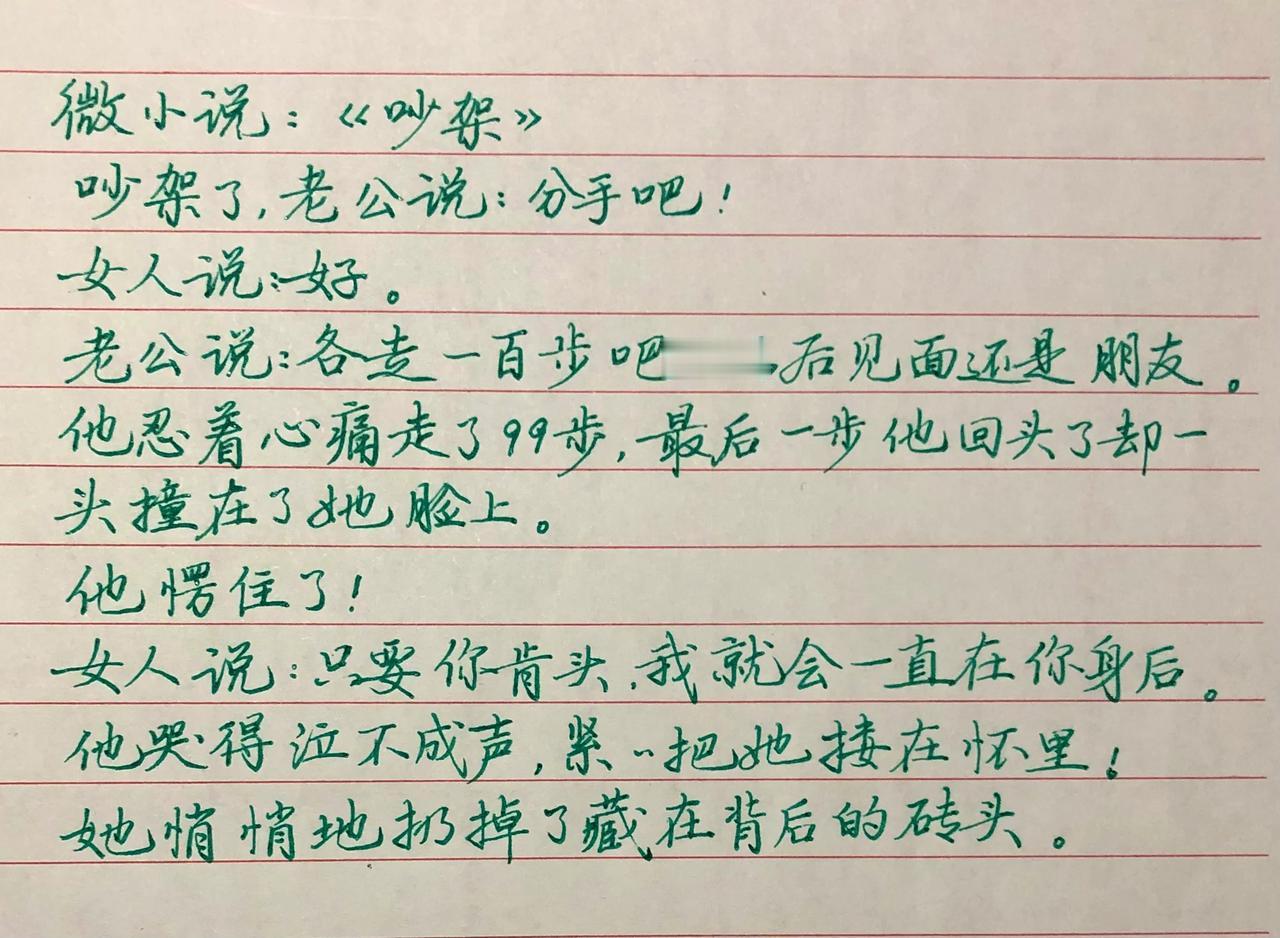 微小说：《吵架》
吵架了，老公说：分手吧！
女人说：好。
老公说：各走一百步吧 后见面还是朋友。
他忍着心痛走了99步，最后一步他回头了却一
头撞在了她脸上。
他愣住了！
女人说：只要你肯头，我就会一直在你身后。
他哭得泣不成声，紧〻把她搂在怀里！
她悄悄地扔掉了藏在背后的砖头。